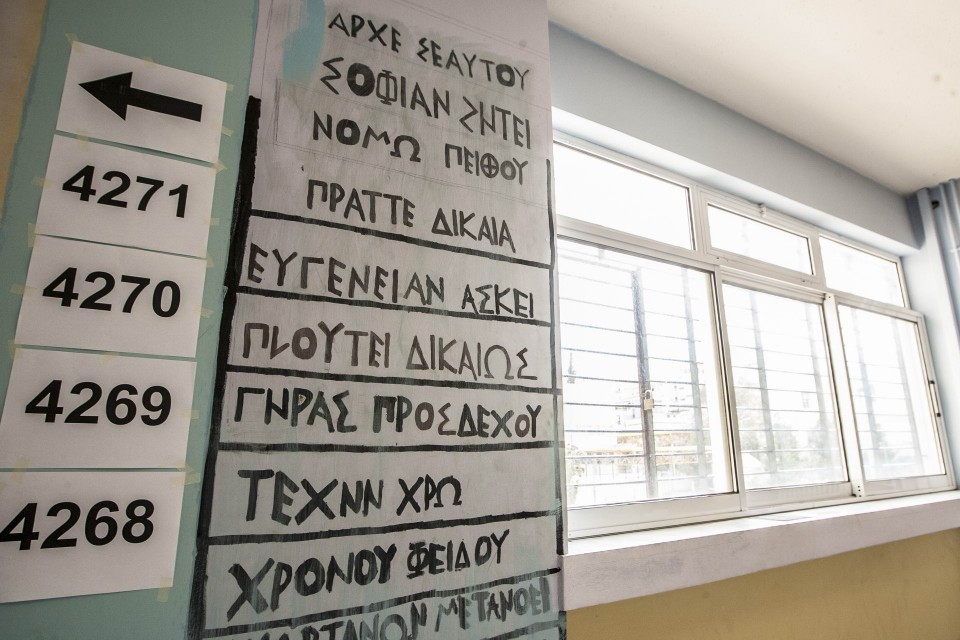 4271
4270
4269
4268
ΑΡΧΕ ΣΕΑΥΤΟΥ
ΣΟΦΙΑΝ ΖΗΤΕΙ
ΝΟΜΩ ΠΕΙΘΟΥ
ΠΡΑΤΤΕ ΔΙΚΑΙΑ
ΕΥΓΕΝΕΙΑΝ ΑΣΚΕΙ
ΠΛΟΥΤΕΙ ΔΙΚΑΙΩΣ
ΓΗΡΑΣ ΠΡΟΣΔΕΧΟΥ
ΤΕΧΝΝ ΧΡΩ
ΧΡΟΝΟΥ ΦΕΙΔΟΥ
ΜΕΤΑΝΟΕΙ